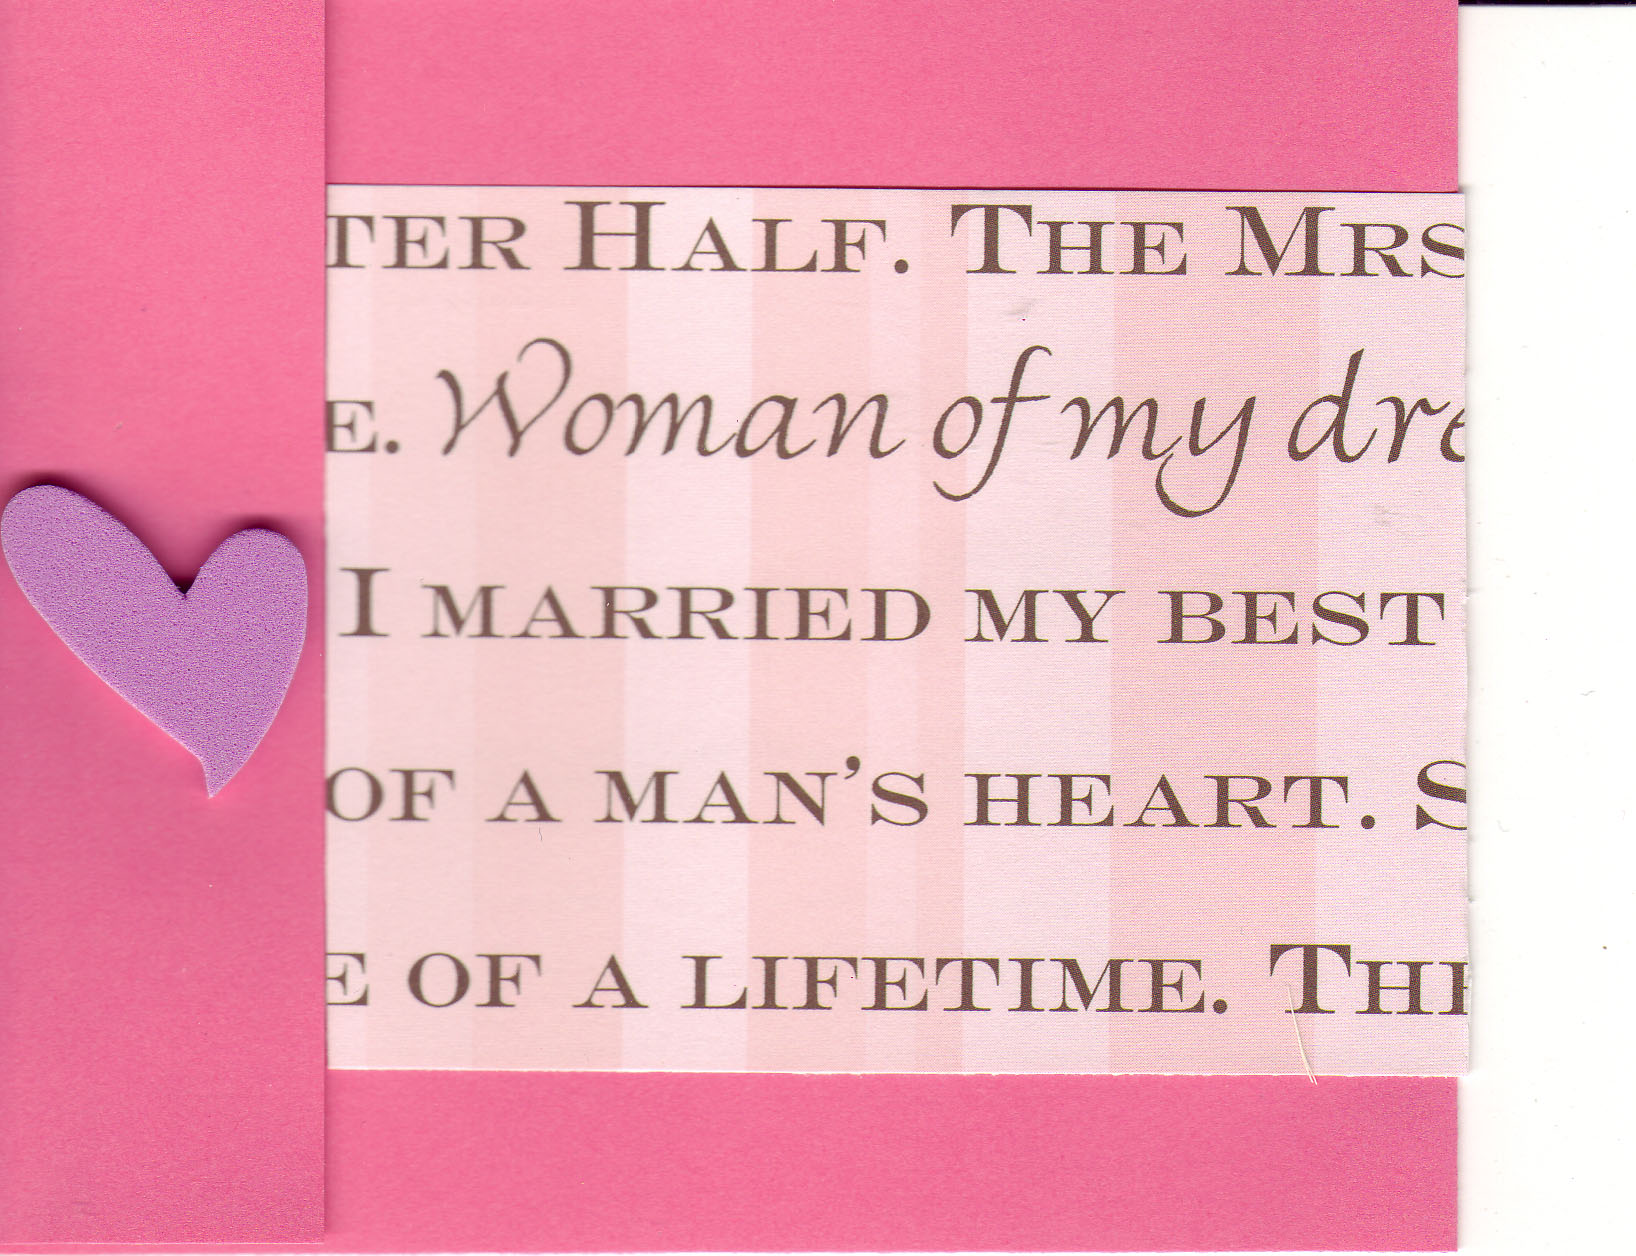 TER HALF. THE MRS
E. Woman of my dre
I MARRIED MY BEST
OF A MAN'S HEART. S
E OF A LIFETIME. THE